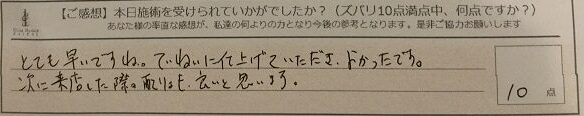 【ご感想】本日施術を受けられていかがでしたか？（ズバリ10点満点中、何点ですか？）
あなた様の率直な感想が、私達の何よりの力となり今後の参考となります。是非ご協力お願いします
とても早いですね。ていねいに仕上げていただき、よかったです。
次に来店した際の配りも、良いと思います。
10 点